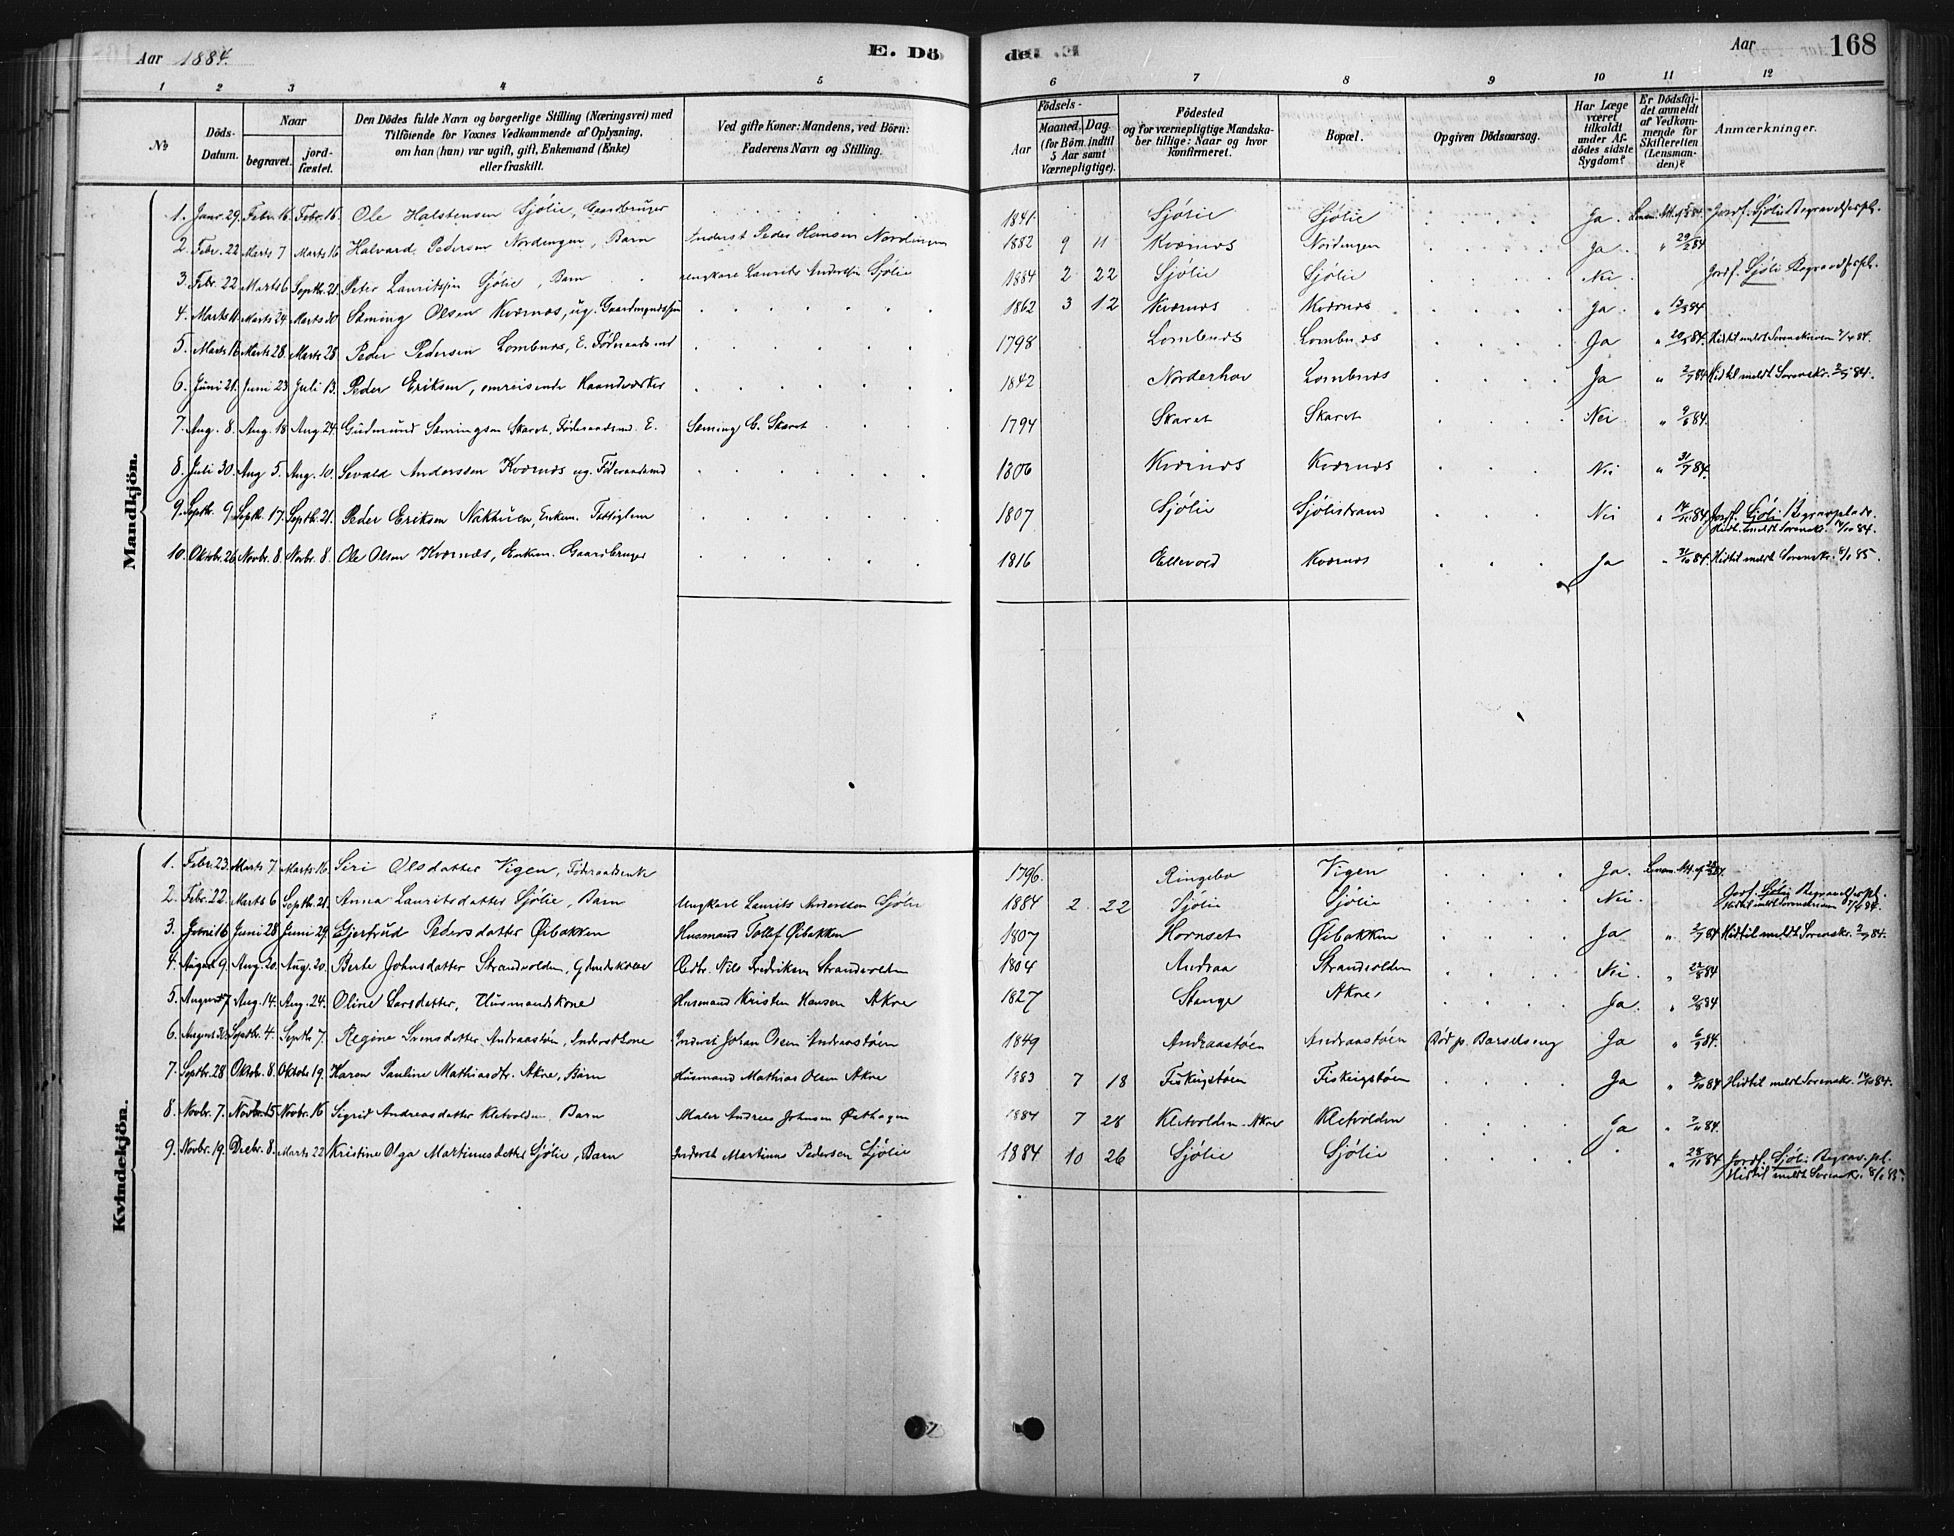 Aar 1884. E. Dö de. Aar 168
1 2 3 4 5 6 7 8 9 10 11 12
No Döds-Datum. Naar begravet. jordfæstet. Den Dödes fulde Navn og borgerlige Stilling (Næringsvei) med Tilföiende for Voxnes Vedkommende af Oplysning, om han (hun) var ugift, gift, Enkemand (Enke) eller fraskilt. Ved gifte Koner: Mandens, ved Börn: Faderens Navn og Stilling. Födsels- Aar Maaned. Dag. (for Börn indtil 5 Aar samt Værnepligtige). Födested og for værnepligtige Mandskaber tillige: Naar og hvor konfirmeret. Bopæl. Opgiven Dödsaarsag. Har Læge været tilkaldt under Afdödes sidste Sygdom? Er Dödsfaldet anmeldt af Vedkommende for Skifteretten (Lensmanden)? Anmærkninger.
Mandkjön.
1. Janr. 29. Febr. 16. Febr. 16. Ole Halstensen Sjølie, Gaardbruger 1841. Sjølie Sjølie Ja. Jordf. Sjølie Begravelsespl.
2. Febr. 22 Marts 7 Marts 16 Halvard Pedersen Nordengen, Barn Inderst Peder Hansen Nordengen 1882 9 11 Kværnæs Nordengen Ja " 29/2 84
3. Febr. 22 Marts 6 Septbr. 21. Peter Lauritssen Sjølie, Barn Ungkarl Laurits Anderssen Sjølie 1884 2 22 Sjølie Sjølie Nei. Jordf. Sjøli Begravelsespl.
4. Marts 11. Marts 24 Marts 30 Sæming Olsen Kværnæs, ug. Gaardmandssøn 1862 3 12 Kværnæs Kværnæs Ja. " 13/3 84
5. Marts 16 Marts 28. Marts 28. Peder Pedersen Lombnæs, E. Føderaadsmd 1798 Lombnæs Lombnæs Ja " 20/3 84. Hidtil meldt Sorenskriveren 2/4 84.
6. Juni 21. Juni 23 Juli 13. Peder Eriksen, omreisende Haandværker 1842 Norderhov Lombnæs Ja " 2/7 84 Hidtil meldt Sorenskr. 2/7 84.
7. Aug. 8. Aug. 18 Aug. 24. Gudmund Sæmingsen Skaret, Føderaadsmd. E. Sæming G. Skaret 1794 Skaret Skaret Nei " 9/8 84.
8. Juli 30. Aug 5. Aug. 10. Sevald Anderssen Kværnæs ug. Føderaadsmd 1806 Kværnæs Kværnæs Nei " 31/7 84.
9. Septbr. 9. Septbr. 17. Septbr. 21. Peder Eriksen Nakkuen, Enkem. Fattiglem 1807 Sjølie Sjølistrand Nei Jordf. Sjøli Begravplads.
Hidtil meldt Sorensk. 14/10 84.
10. Oktobr. 26 Novbr. 8 Novbr. 8. Ole Olsen Kværnæs, Enkem. Gaardbruger 1816 Ellevold Kværnæs Ja " 31/10 84. Hidtil meldt Sorenskr. 8/1 85.
Kvindekjön.
1. Febr. 23. Marts 7 Marts 16. Siri Olsdatter Vigen, Føderaadsenke 1796. Ringebo Vigen Ja.
2. Febr. 22. Marts 6 Septbr. 21. Anna Lauritsdatter Sjølie, Barn Ungkarl Laurits Anderssen Sjølie 1884 2 22 Sjølie Sjølie Nei. Jordf. Sjøli Begravelsespl.
3. Juni 16 Juni 28 Juni 29 Gjertrud Pedersdatter Øibakken Husmand Tollef Øibakken 1807 Hornset Øibakken Ja " 2/7 84 Hidtil meldt Sorenskr. 2/7 84.
4. August 9. Aug. 20. Aug. 20. Berte Johnsdatter Strandvolden, Nils Fredriksen Strandvolden 1804 Andraa Strandvolden Nei " 22/8 84
5. August 7 Aug. 14. Aug. 24. Oline Larsdatter, Husmandskone Husmand Kristen Hansen Akre 1827 Stange Akre Ja. " 9/8 84
6. August 30. Septbr. 4. Septbr 7. Regine Svensdatter Andraastøen, Inderstkone Inderst Johan Olsen Andraastøen 1849 Andraastøen Andraastøen Død p. Barselseng Ja " 6/9 84.
7. Septbr. 28 Oktob. 8. Oktob. 19. Karen Pauline Mathiasdtr. Akre, Barn Husmand Mathias Olsen Akre 1883 7 18 Fiskingstøen Fiskingstøen Ja Hidtil meldt Sorenskr. 14/10 84.
8. Novbr. 7. Novbr. 15 Novbr. 16 Sigrid Andreasdatter Kletvolden Barn Maler Andreas Johnsen Østhagen 1884 7 28 Kletvolden Akre Kletvolden Ja
9. Novbr. 19. Decbr. 8. Marts 22. Kristine Olga Martinusdatter Sjølie, Barn Inderst Martinus Pedersen Sjølie 1884 10 26 Sjølie Sjølie " 28/11 84 Jordf. Sjøli Begrav.pl.
Hidtil meldt Sorenskr. 8/1 85.